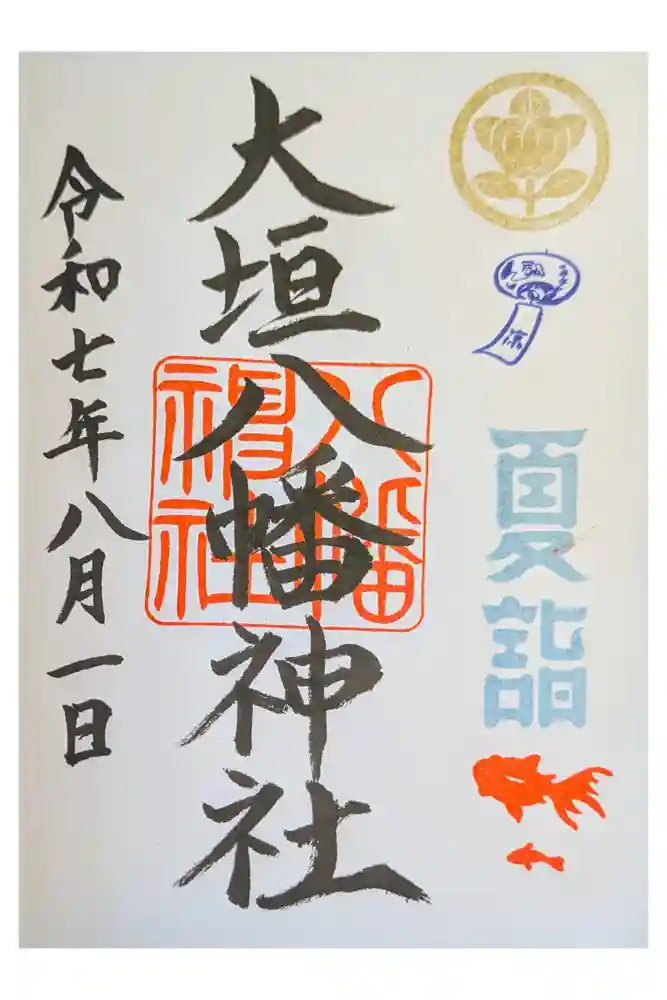 夏詣
大垣八幡神社
八幡神社
令和七年八月一日